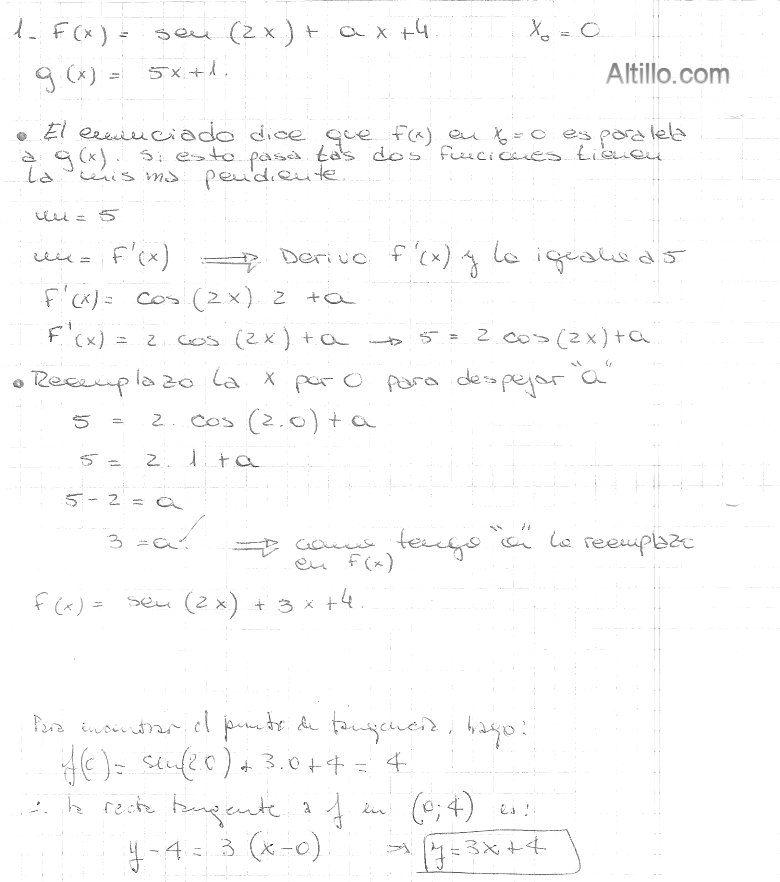 1- F(x) = sen (2x) + a x + 4 X₀ = 0
g(x) = 5x+1.
Altillo.com
• El enunciado dice que f(x) en x₀=0 es paralela
a g(x). Si esto pasa las dos funciones tienen
la misma pendiente.
m = 5
m = F'(x) ⟹ Derivo f'(x) y lo igualo a 5
F'(x) = cos (2x) 2 + a
F'(x) = 2 cos (2x) + a → 5 = 2 cos (2x) + a
• Reemplazo la x por 0 para despejar "a"
5 = 2. cos (2.0) + a
5 = 2. 1 + a
5 - 2 = a
3 = a. ⟹ como tengo "a" lo reemplazo
en F(x)
F(x) = sen (2x) + 3x + 4.
Para encontrar el punto de tangencia, hago:
f(0) = sen(2.0) + 3.0 + 4 = 4
∴ la recta tangente a f en (0;4) es:
y - 4 = 3 (x-0) ⇒ y = 3x + 4